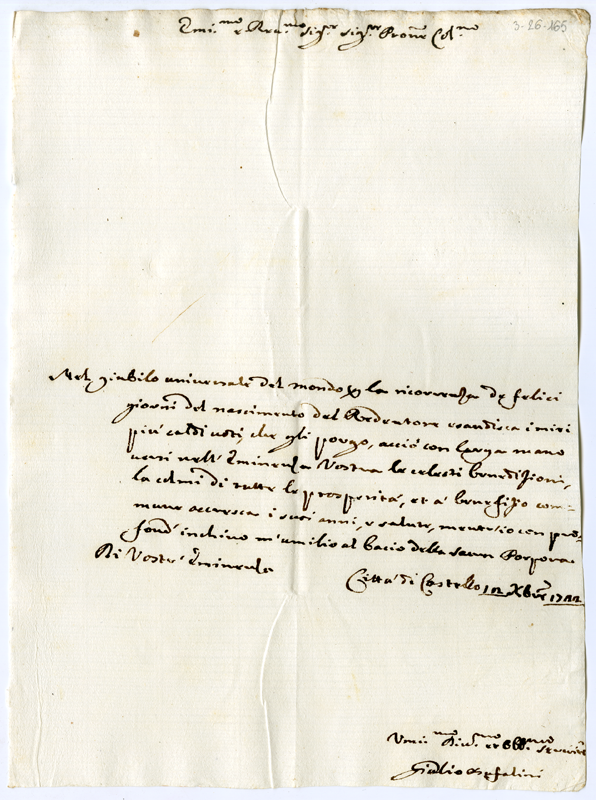 Emi.mo e Rev.mo Sig.r Sig.r Prone Col.mo
3-26-165
Nel giubilo universale del mondo per la ricorrenza de felici
giorni del nascimento del Redentore esaudisca i miei
più caldi voti, che gli porgo, acciò con larga mano
versi nell'Eminenza Vostra le celesti benedizioni,
la colmi di tutte le prosperità, et a benefizio com-
mune accresca i suoi anni, e salute, mentre io con pro-
fond' inchino m'umilio al bacio della Sacra Porpora
Di Vostr' Eminenza
Città di Castello Xbre
Umi.mo Div.mo et Obb.mo Servire
Giulio Bufalini